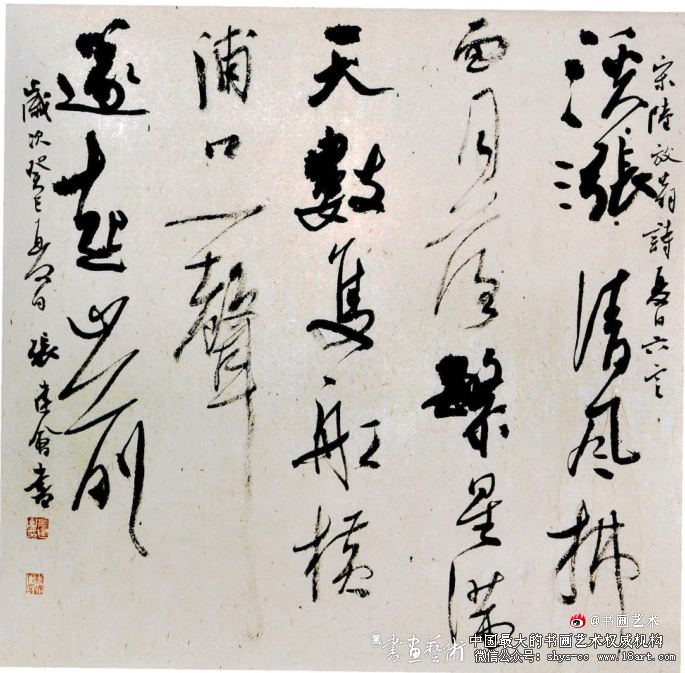 宋陸放翁詩夏日六言
溪漲清風拂
面月落繁星滿
天數隻舡橫
浦口一聲
篴起山前
歲次癸巳春日張建會書
@书画艺术
書畫藝術
中国最大的书画艺术权威机构
微信公众号:shys-cc www.18art.com